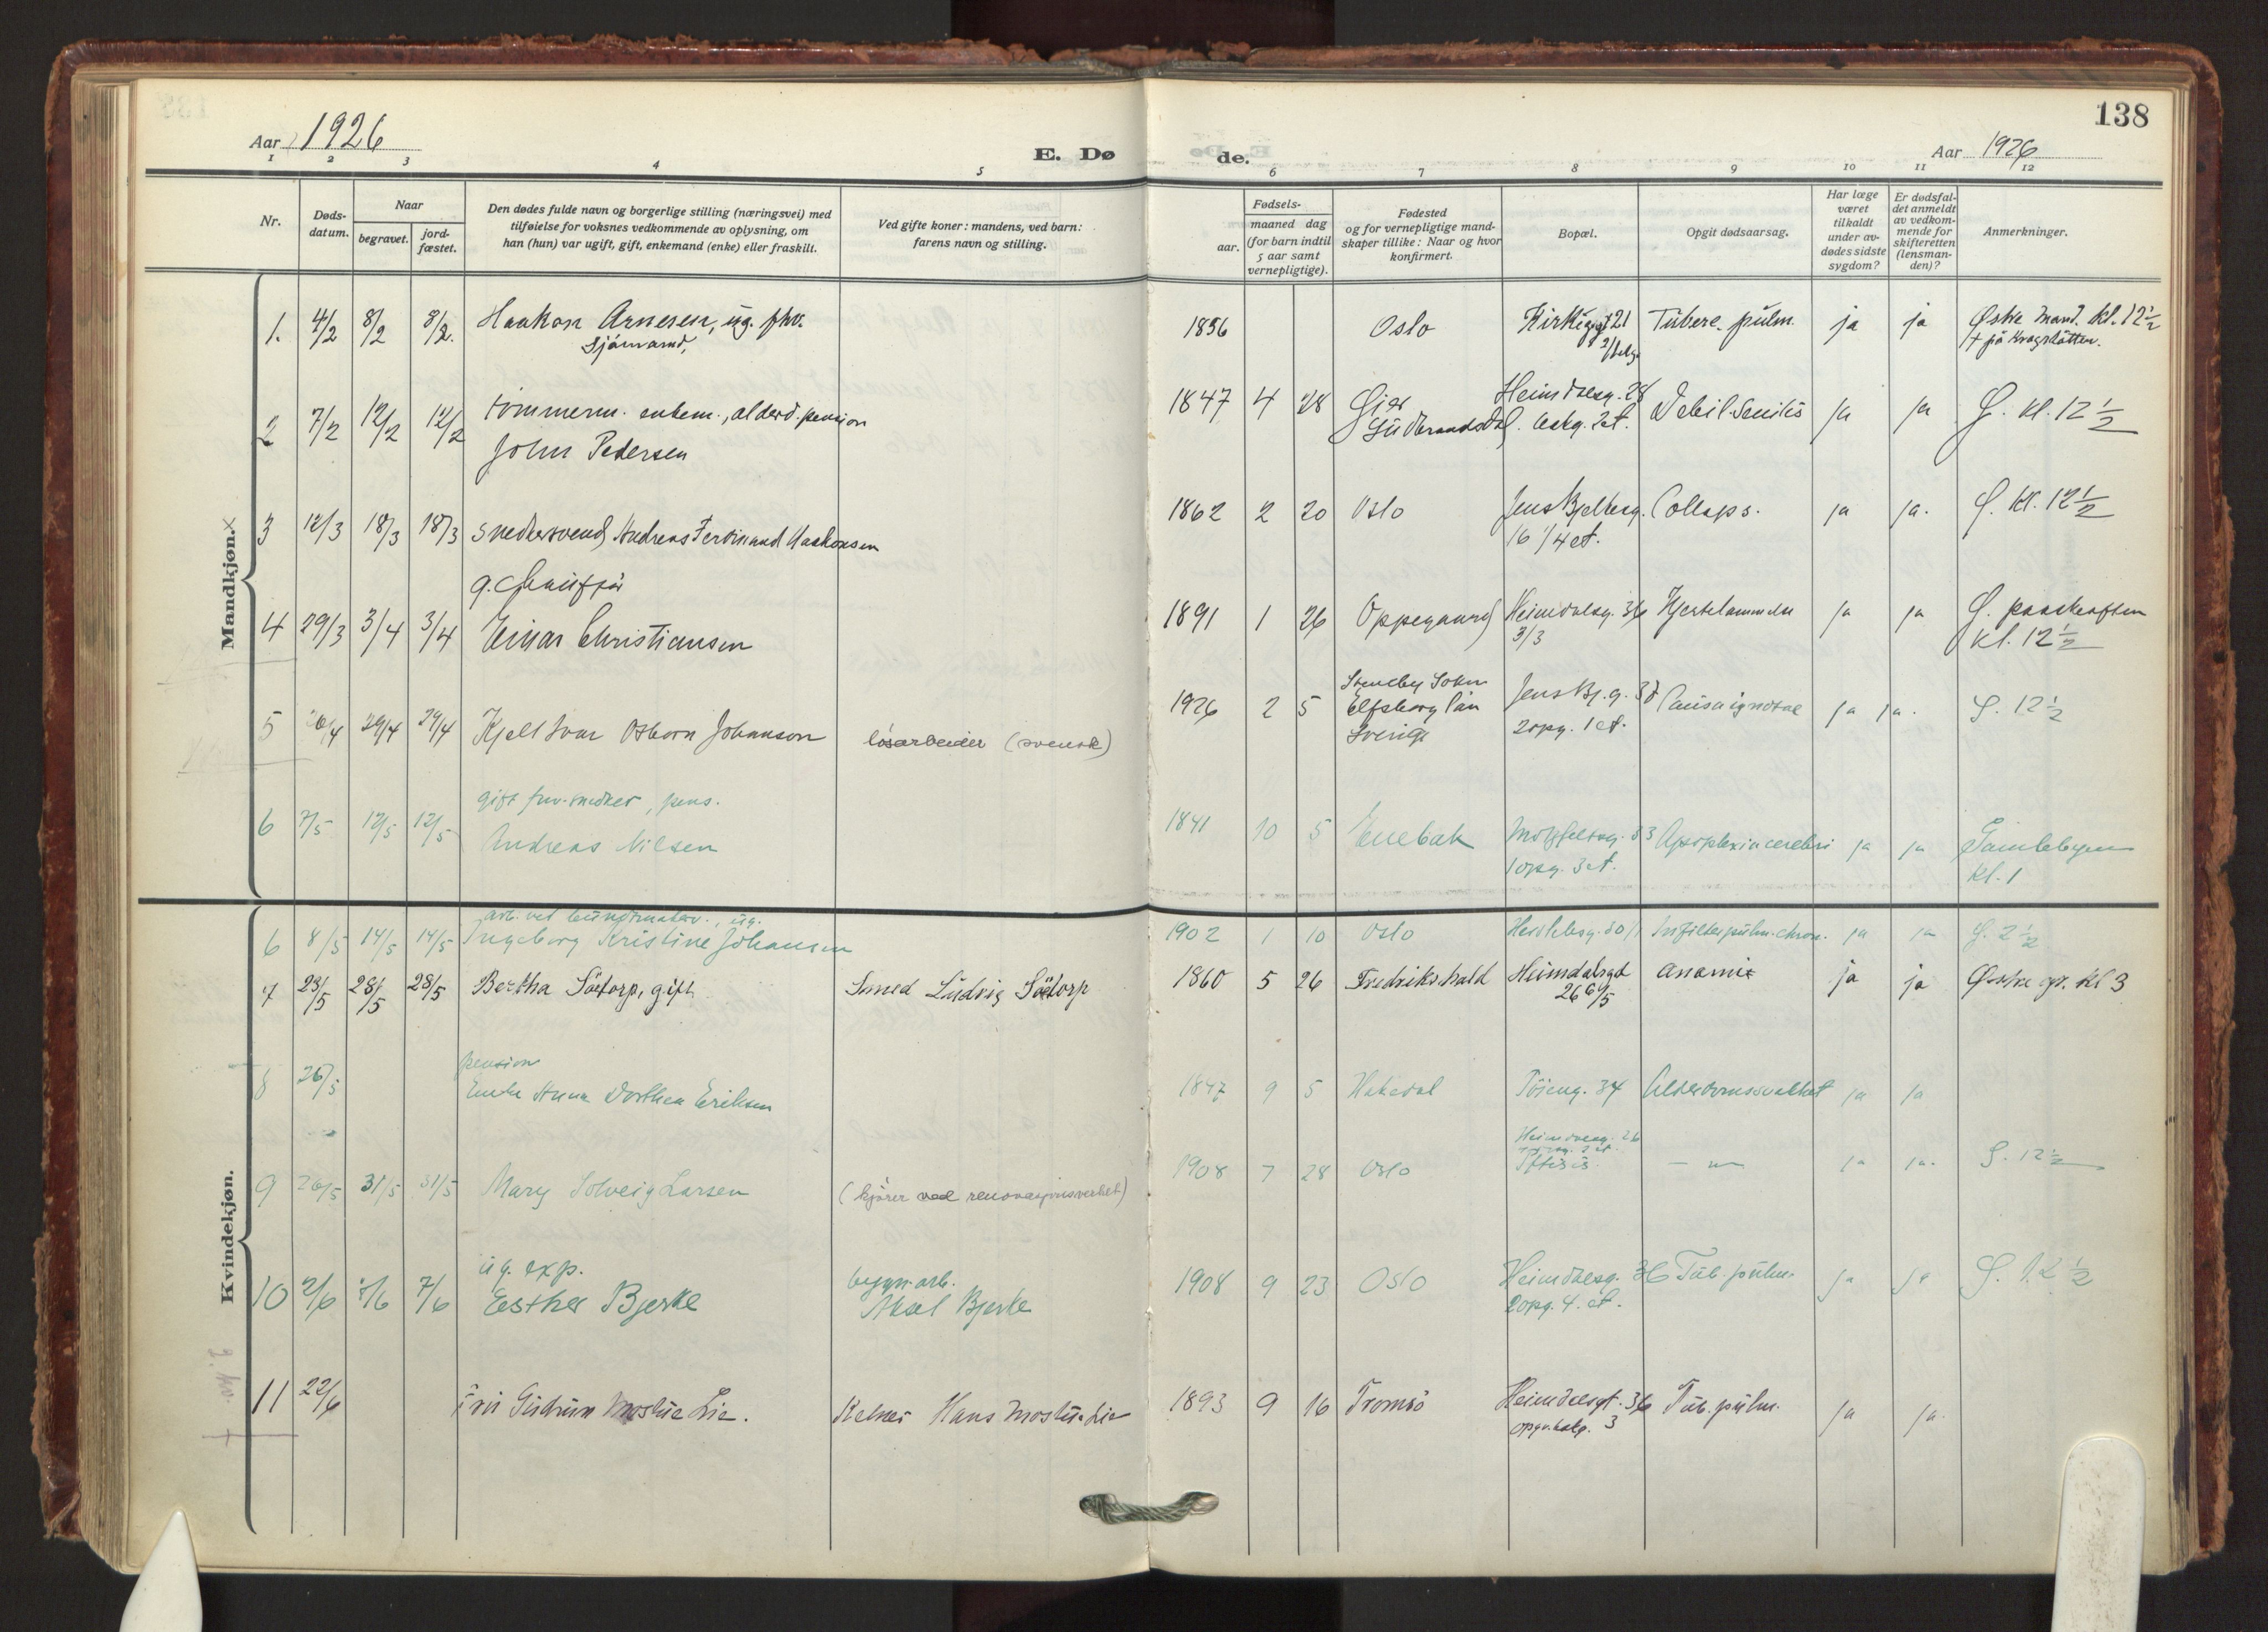 138
Aar 1926
E. Dø de.
Aar 1926
1 2 3 4 5 6 7 8 9 10 11 12
Nr.
Døds-
datum.
Naar
begravet.
jord-
fæstet.
Den dødes fulde navn og borgerlige stilling (næringsvei) med
tilføielse for voksnes vedkommende av oplysning, om
han (hun) var ugift, gift, enkemand (enke) eller fraskilt.
Ved gifte koner: mandens, ved barn:
farens navn og stilling.
Fødsels-
aar.
maaned dag
(for barn indtil
5 aar samt
vernepligtige).
Fødested
og for vernepligtige mand-
skaper tillike: Naar og hvor
konfirmert.
Bopæl.
Opgit dødsaarsag.
Har læge
været
tilkaldt
under av-
dødes sidste
sygdom?
Er dødsfal-
det anmeldt
av vedkom-
mende for
skifteretten
(lensman-
den)?
Anmerkninger.
Mandkjøn.
1. 4/2 8/2 8/2. Haakon Arnesen, ug. fhv. 1856 Oslo Tuberc. pulm. ja ja Østre kl. 12 1/2
sjømand,
tømmerm. enkem., alderd. pension
2 7/2 12/2 12/2 John Pedersen 1847 4 28 Heimdalsg. 28 Debil. senilis ja ja G. kl. 12 1/2
Gudbrandsdal. 2 et.
3 12/3 18/3 18/3 snedkersvend Andreas Ferdinand Haakonsen 1862 2 20 Oslo Jens Bjelkesg. Collaps. ja ja. G. kl. 12 1/2
16 1/4 et.
g. chauffør
4 29/3 3/4 3/4 Einar Christiansen 1891 1 26 Oppegaard Heimdalsg. 36 Hjertelammelse ja ja G. paaskeaften
3/3 kl. 12 1/2
5 20/4 29/4 29/4 Kjell Ivar Osborn Johanson løsarbeider (svensk) 1926 2 5 Elfsborg län Jens Bj. g. Causa ignotae ja ja. G. 12 1/2
Sverige 2 opg. 1 et.
gift fhv. snedker, pens.
6 7/5 12/5 12/5 Andreas Nilsen 1841 10 5 Enebak Apoplexia cerebri ja ja Gamlebyen
1 opg. 3 et. kl. 1
Kvindekjøn.
arb. ved ug.
6 8/5 14/5 14/5 Ingeborg Kristine Johansen 1902 1 10 Oslo Herslebsg. Infiltr. pulm. chron. ja ja G. 2 1/2
7 23/5 28/5 28/5 Bertha Sætorp, gift Smed Ludvig Sætorp 1860 5 26 Fredrikshald Heimdalsgt Anæmi ja ja Østre gr. kl 3
26
pension
8 26/5 Enke Anna Dorthea Eriksen 1847 9 5 Hakedal Tøieng. 34 Alderdomssvakhet ja ja
Heimdalsg. 26
9 26/5 31/5 31/5 Mary Solveig Larsen (kjører ved renovasjonsverket) 1908 7 28 Oslo Ftisis. — ja ja. G. 12 1/2
ug. exp. bygn. arb.
10 2/6 7/6 7/6 Esther Bjerke Aksel Bjerke 1908 9 23 Oslo Heimdalsg. 36 Tub. pulm. ja ja G. 12 1/2
2 opg. 4. et.
11 22/6 Fru Gudrun Mostue Lie. Kelner Hans Mostue Lie 1893 9 16 Tromsø Heimdalsgt. 36 Tub. pulm. ja ja.
3